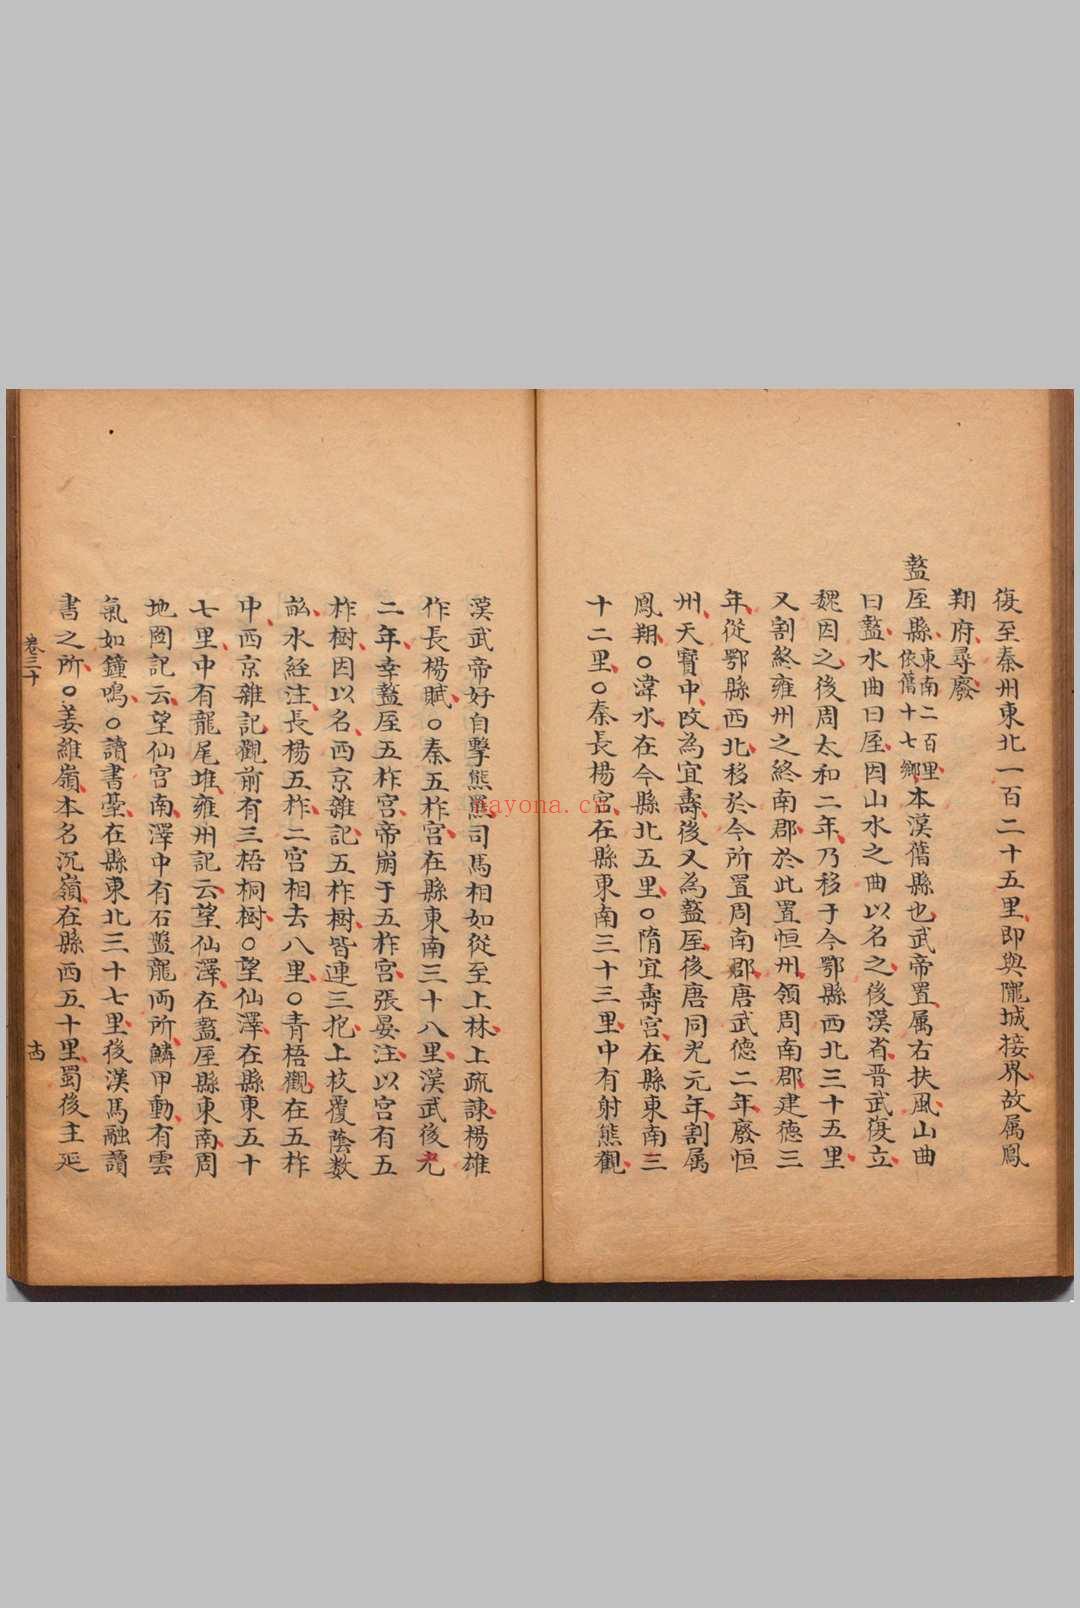 復至秦州東北一百二十五里即與隴城接界故属鳳
翔府尋廢
盩厔縣東南二百里依舊十七鄉本漢舊縣也武帝置属右扶風山曲
曰盩水曲曰厔因山水之曲以名之後漢省晉武復立
魏因之後周太和二年乃移于今鄠縣西北三十五里
又割終雍州之終南郡於此置恒州領周南郡建德三
年從鄠縣西北移於今所置周南郡唐武德二年廢恒
州天寶中改為宜壽後又為盩厔後唐同光元年割属
鳳翔○渭水在今縣北五里○隋宜壽宮在縣東南三
十二里○秦長楊宮在縣東南三十三里中有射熊觀
漢武帝好自擊熊羆司馬相如從至上林上疏諫楊雄
作長楊賦○秦五柞宮在縣東南三十八里漢武後元
二年幸盩厔五柞宮帝崩于五柞宮張晏注以宮有五
柞樹因以名西京雜記五柞樹皆連三抱上枝覆蔭数
畝水経注長楊五柞二宮相去八里○青梧觀在五柞
中西京雜記觀前有三梧桐樹○望仙澤在縣東五十
七里中有龍尾堆雍州記云望仙澤在盩厔縣東南周
地圖記云望仙宮南澤中有石盤龍両所鱗甲動有雲
氣如鐘鳴○讀書臺在縣東北三十七里後漢馬融讀
書之所○姜維嶺本名沉嶺在縣西五十里蜀後主延
卷三十
十四
nayona.cn